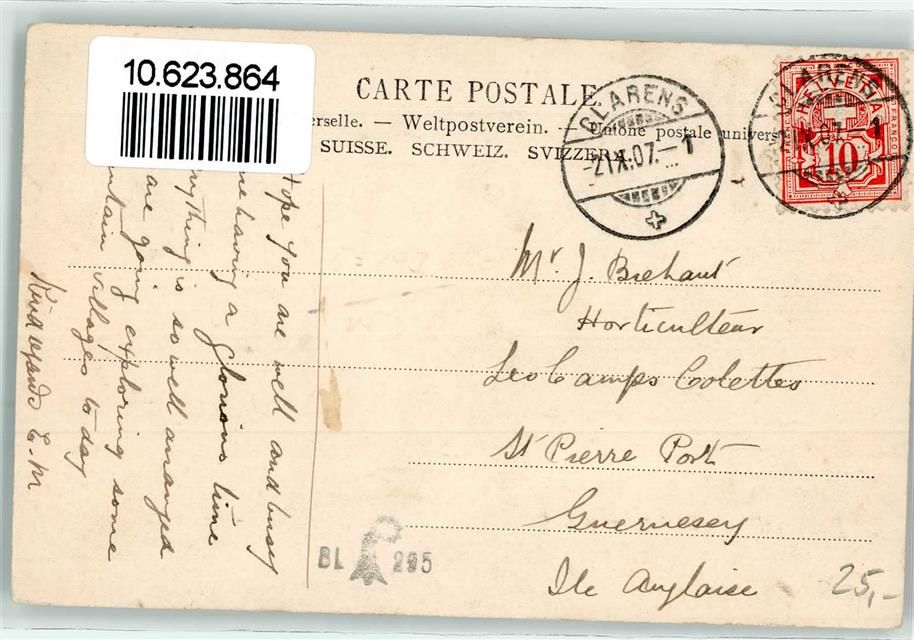 10.623.864
CARTE POSTALE.
erselle. — Weltpostverein. — Unione postale univers
SUISSE. SCHWEIZ. SVIZZERA.
CLARENS
2.IX.07.-1
CLARENS
07.-1
HELVETIA
FRANCO
10
Hope you are well and busy
are having a glorious time
thing is so well arranged
are going exploring some
ntain villages to day
Kind regards E. M
Mr J. Brehaut
Horticulteur
Les Camps Colettes
St Pierre Port
Guernesey
Ile Anglaise
BL 295
25,-